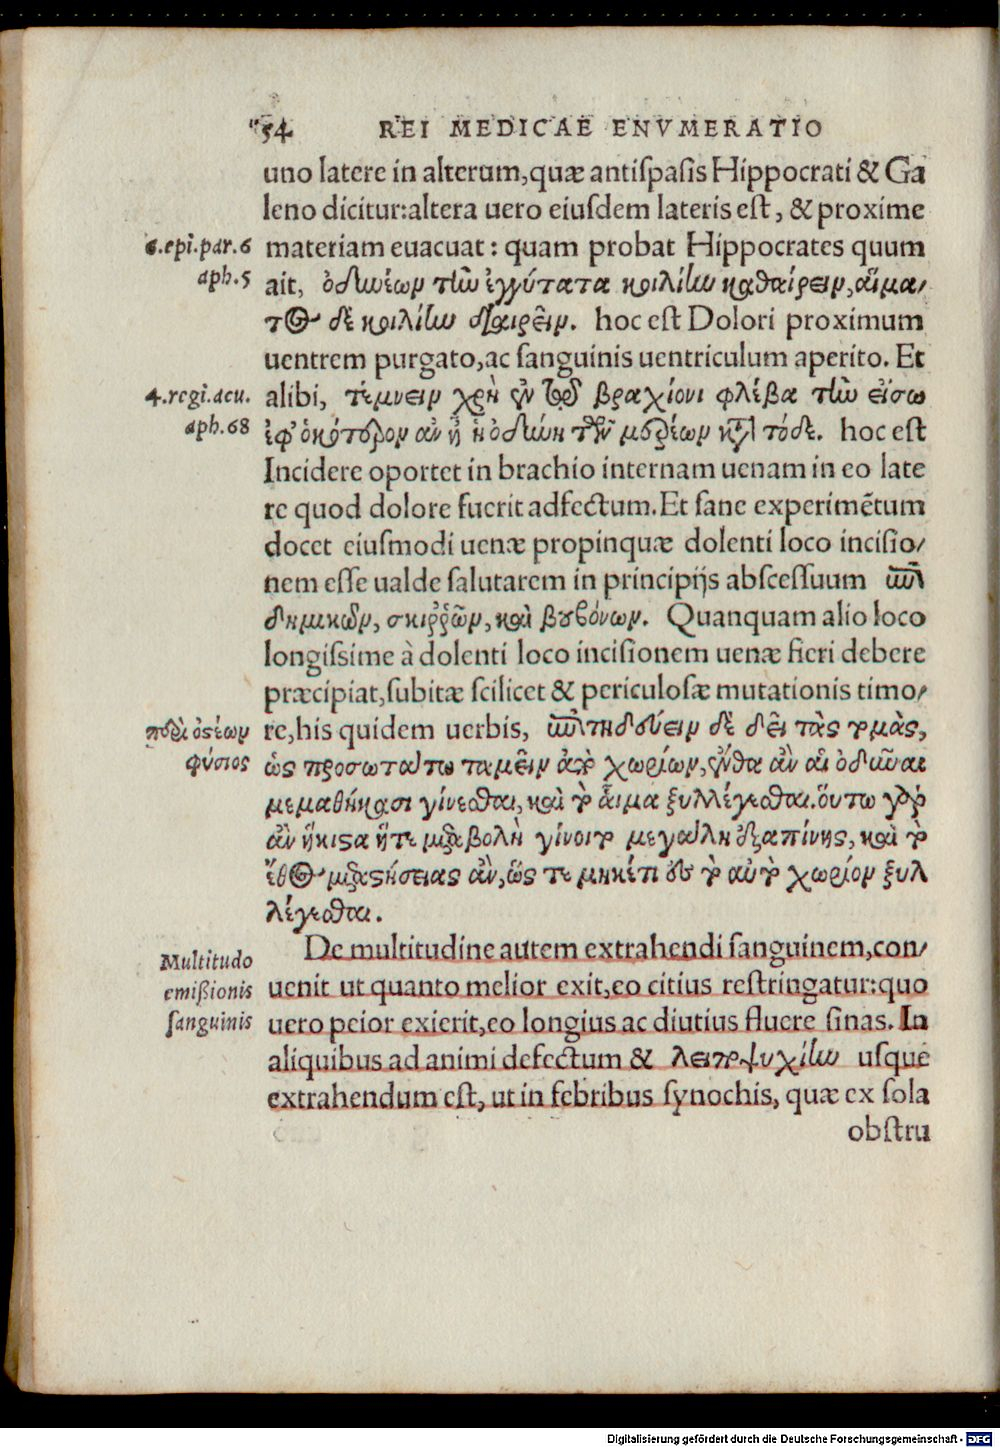 54 REI MEDICAE ENVMERATIO
uno latere in alterum, quæ antiſpaſis Hippocrati & Ga
leno dicitur: altera uero eiuſdem lateris eſt, & proxime
6.epi.par.6 materiam euacuat: quam probat Hippocrates quum
aph.5 ait, ὀδυνέων τὴν ἐγγύτατα κοιλίην καθαίρειν, αἵμα/
τος δὲ κοιλίην διαιρεῖν. hoc eſt Dolori proximum
uentrem purgato, ac ſanguinis uentriculum aperito. Et
4.regi.acu. alibi, τέμνειν χρὴ ἐν τῷ βραχίονι φλέβα τὴν εἴσω
aph.68 ἐφ' ὁκότερον ἂν ᾖ ἡ ὀδύνη τῶν μερέων κατὰ τόδε. hoc eſt
Incidere oportet in brachio internam uenam in eo late
re quod dolore fuerit adfectum. Et ſane experimẽtum
docet eiuſmodi uenæ propinquæ dolenti loco inciſio/
nem eſſe ualde ſalutarem in principijs abſceſſuum ἐπι
δημικῶν, σκιῤῥῶν, καὶ βουβόνων. Quanquam alio loco
longiſsime à dolenti loco inciſionem uenæ fieri debere
præcipiat, ſubitæ ſcilicet & periculoſæ mutationis timo/
περὶ ὀστέων re, his quidem uerbis, ἐπιτηδεύειν δὲ δεῖ τὰς τομὰς,
φύσιος ὡς προσωτάτω ταμεῖν ἀπὸ χωρίων, ἔνθα ἂν αἱ ὀδῦναι
μεμαθήκασι γίνεσθαι, καὶ τὸ αἷμα ξυλλέγεσθαι. οὕτω γὰρ
ἂν ἥκιστα ἥ τε μεταβολὴ γίνοιτο μεγάλη ἐξαπίνης, καὶ τὸ
ἔθος μεταστήσειας ἂν, ὥς τε μηκέτι ἐς τὸ αὐτὸ χωρίον ξυλ
λέγεσθαι.
De multitudine autem extrahendi ſanguinem, con/
Multitudo uenit ut quanto melior exit, eo citius reſtringatur: quo
emißionis uero peior exierit, eo longius ac diutius fluere ſinas. In
ſanguinis aliquibus ad animi defectum & λειποψυχίην uſque
extrahendum eſt, ut in febribus ſynochis, quæ ex ſola
obſtru
Digitalisierung gefördert durch die Deutsche Forschungsgemeinschaft - DFG